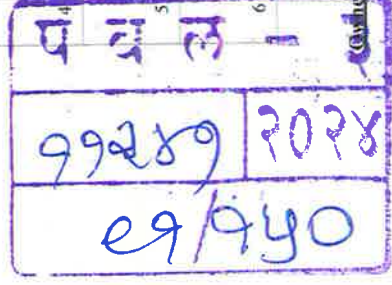 प व ल - १
११२४१ २०२४
८१/१५०